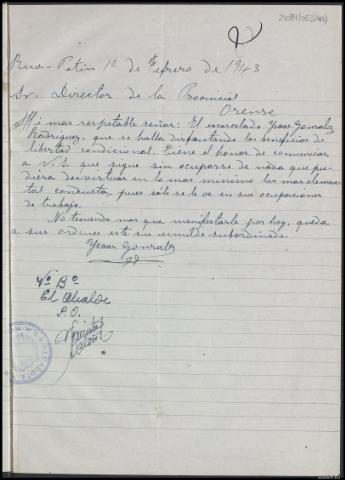 24084/053(44)
Rua-Petin 1º de febrero de 1943
Sr. Director de la Provincial
Orense
Mi mas respetable señor: El escarcelado Ysaac Gonzalez
Rodriguez, que se halla disfrutando los beneficios de
libertad condicional. Tiene el honor de comunicar
a V.E. que sigue sin ocuparse de nada que pu-
diera desvirtuar en lo mas minimo la mas elemen-
tal conducta, pues sólo se le ve en sus ocupaciones
de trabajo.
No teniendo mas que manifestarle por hoy, queda
a sus ordenes este su umilde subordinado.
Ysaac Gonzalez
Vº Bº
El Alcalde
P.O.
ALCALDIA